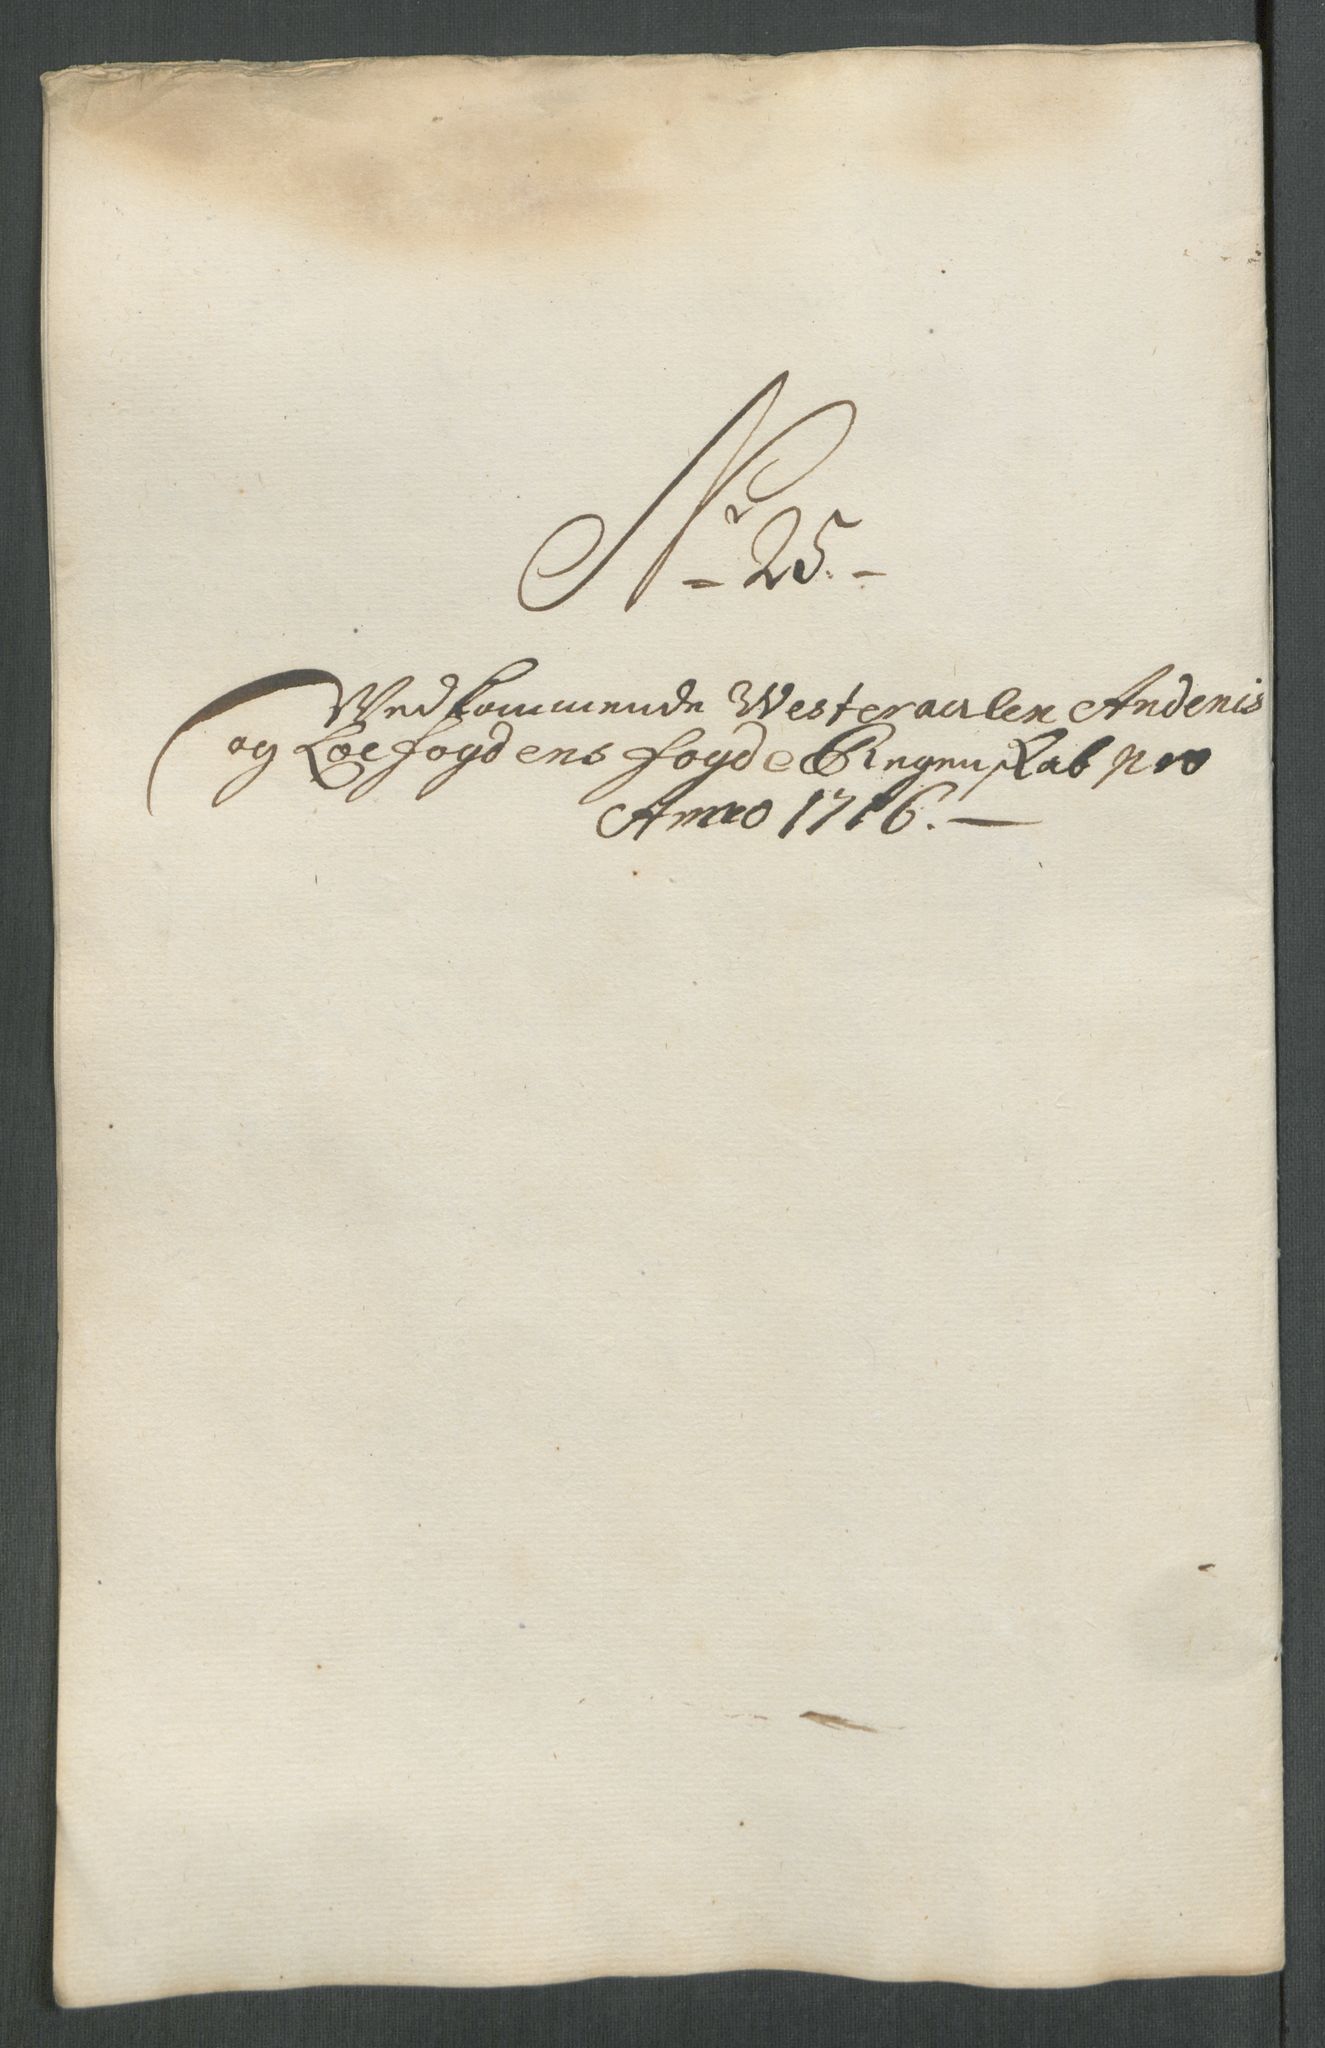 Nr 25.
Vedkommende Westeraalen Andenis
og Loefoydens foyde Regenskab pro
Anno 1716.